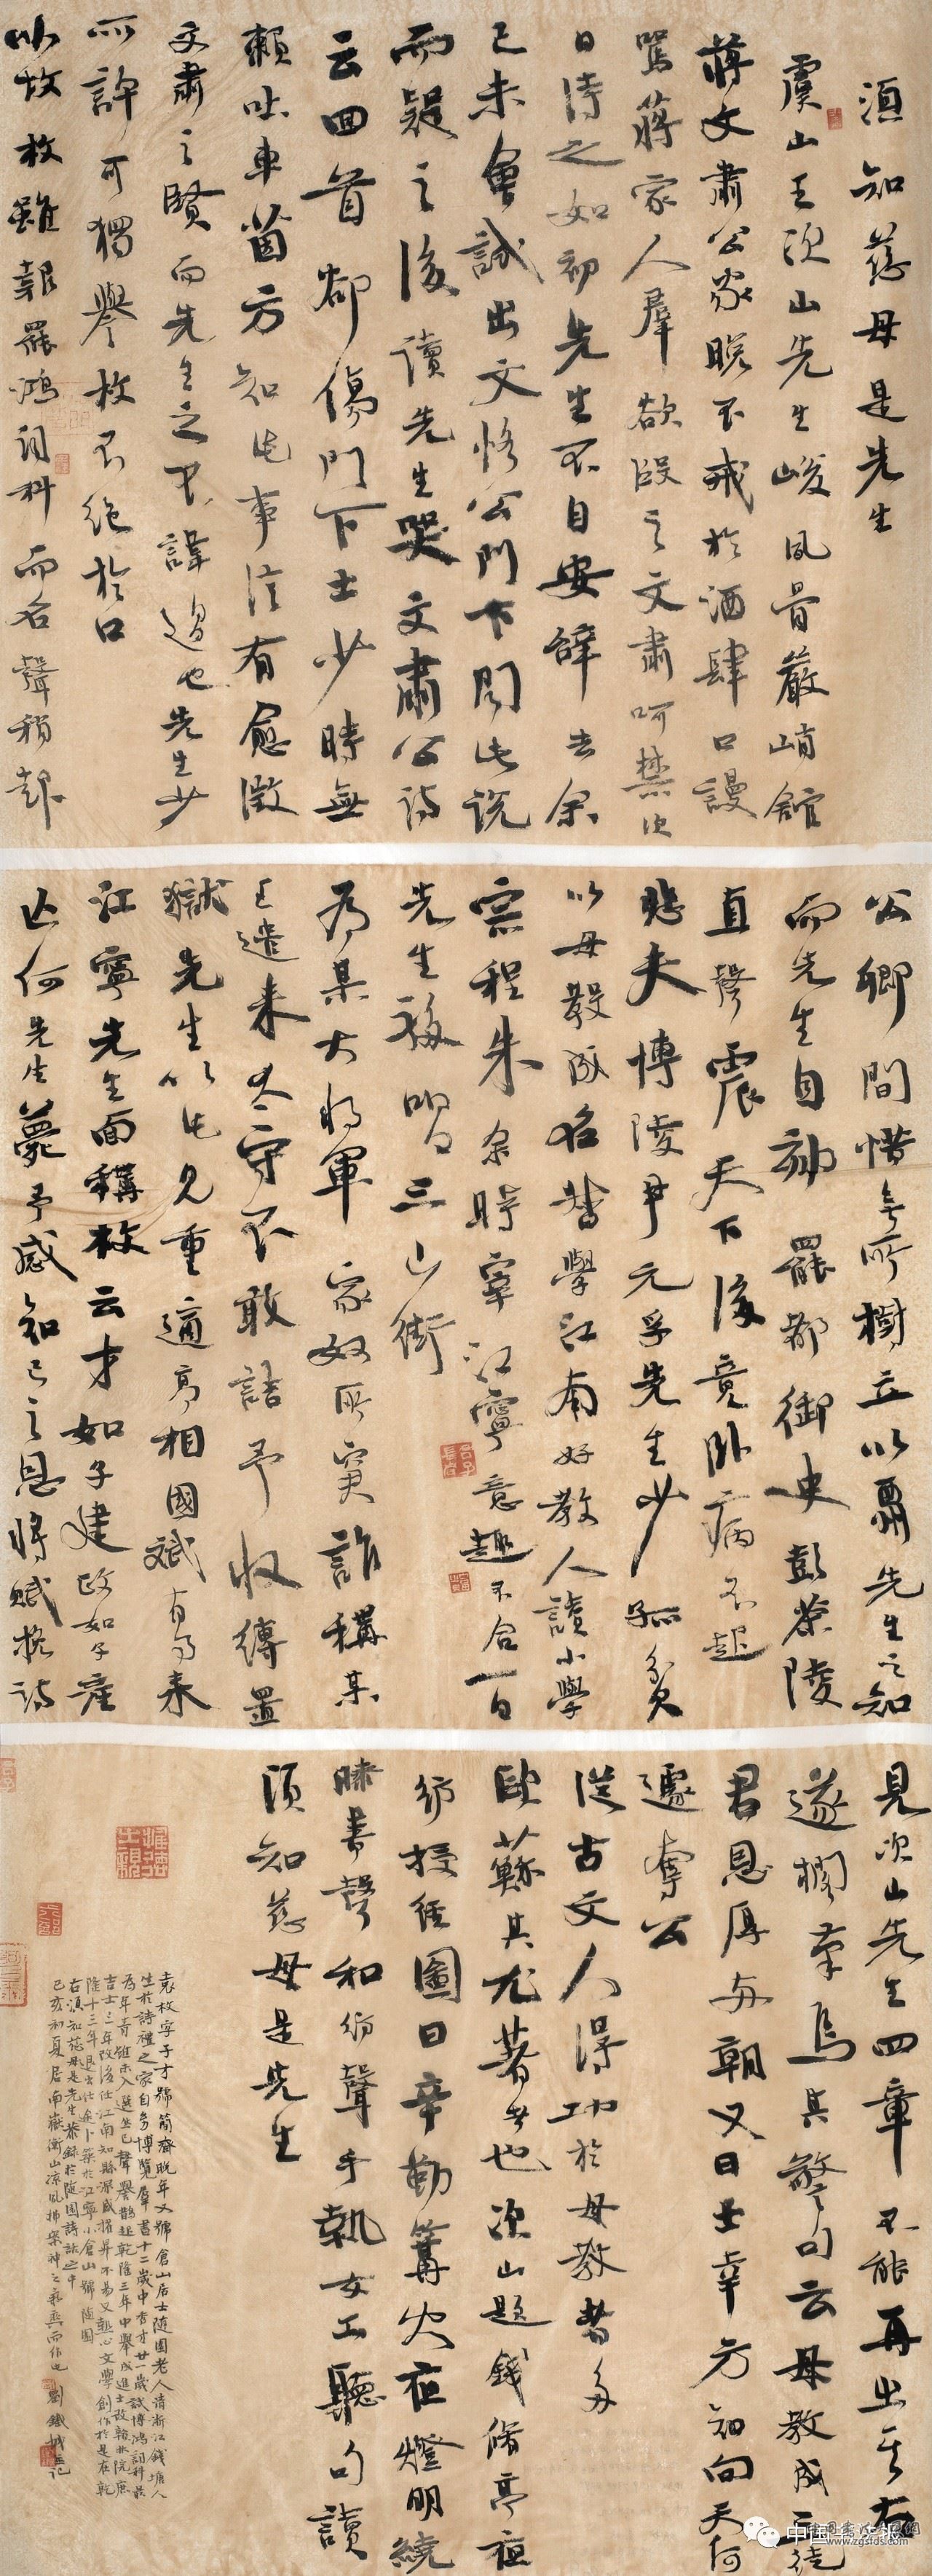 須知慈母是先生
虞山王次山先生峻風骨嚴峭館
蔣文肅公家晚不戒於酒肆口謾
罵蔣家人羣欲毆之文肅呵禁次
日待之如初先生不自安辭去余
己未會試出文恪公門下聞此說
而疑之後讀先生哭文肅公詩
云回首卻傷門下士少時無
賴吐車茵方知此事信有愈徵
文肅之賢而先生之不諱過也先生少
所許可獨譽枚不絕於口
以故枚雖報罷鴻詞科而名聲稍起
公卿間惜無所樹立以副先生之知
而先生自劾罷都御史彭茶陵
直聲震天下後竟臥病不起
悲夫博陵尹元孚先生少孤貧
以母教成名督學江南好教人讀小學
宗程朱余時宰江寧意趣不合一日
先生移唱三山街
為某大將軍家奴所窘詐稱某
王遣來太守不敢詰予收縛置
獄先生以此見重適高相國斌有事來
江寧先生面稱枚云才如子建政如子產
亡何先生薨予感知己之恩將賦挽詩
見次山先生四章不能再出其右
遂擱筆焉其警句云母教成三徙
君恩厚兩朝又曰士幸方知向天何
遽奪公
從古文人得功於母教者多
歐蘇其尤著者也次山題錢修亭夜
紡授經圖曰辛勤篝火夜燈明繞
膝書聲和紡聲手執女工聽句讀
須知慈母是先生
袁枚字子才號簡齋晚年又號倉山居士隨園老人清浙江錢塘人
生於詩禮之家自多博覽羣書十二歲中秀才廿一歲試博鴻詞科最
為年青雖未入選然已聲譽鵲起乾隆三年中舉成進士改翰林院庶
吉士三年改後任江南知縣深感擢昇不易又熱心文學創作於是在乾
隆十三年退出仕途卜築於江寧小倉山號隨園
右須知慈母是先生恭錄於隨園詩話之中
己亥初夏居南嶽衡山涼風拂案神之氣爽而作也 劉鐵城並記
中国书法报
www.zgsfds.com